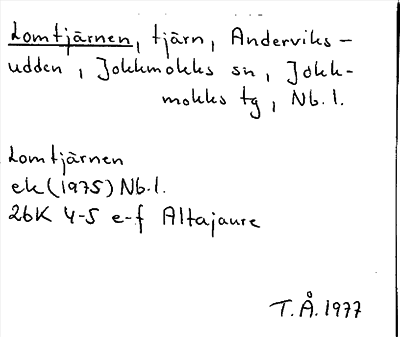 Lomtjärnen, tjärn, Anderviks-
udden, Jokkmokks sn, Jokk-
mokks tg, Nb.l.
Lomtjärnen
ek (1975) Nb.l.
26K 4-5 e-f Altajaure
T.Å. 1977